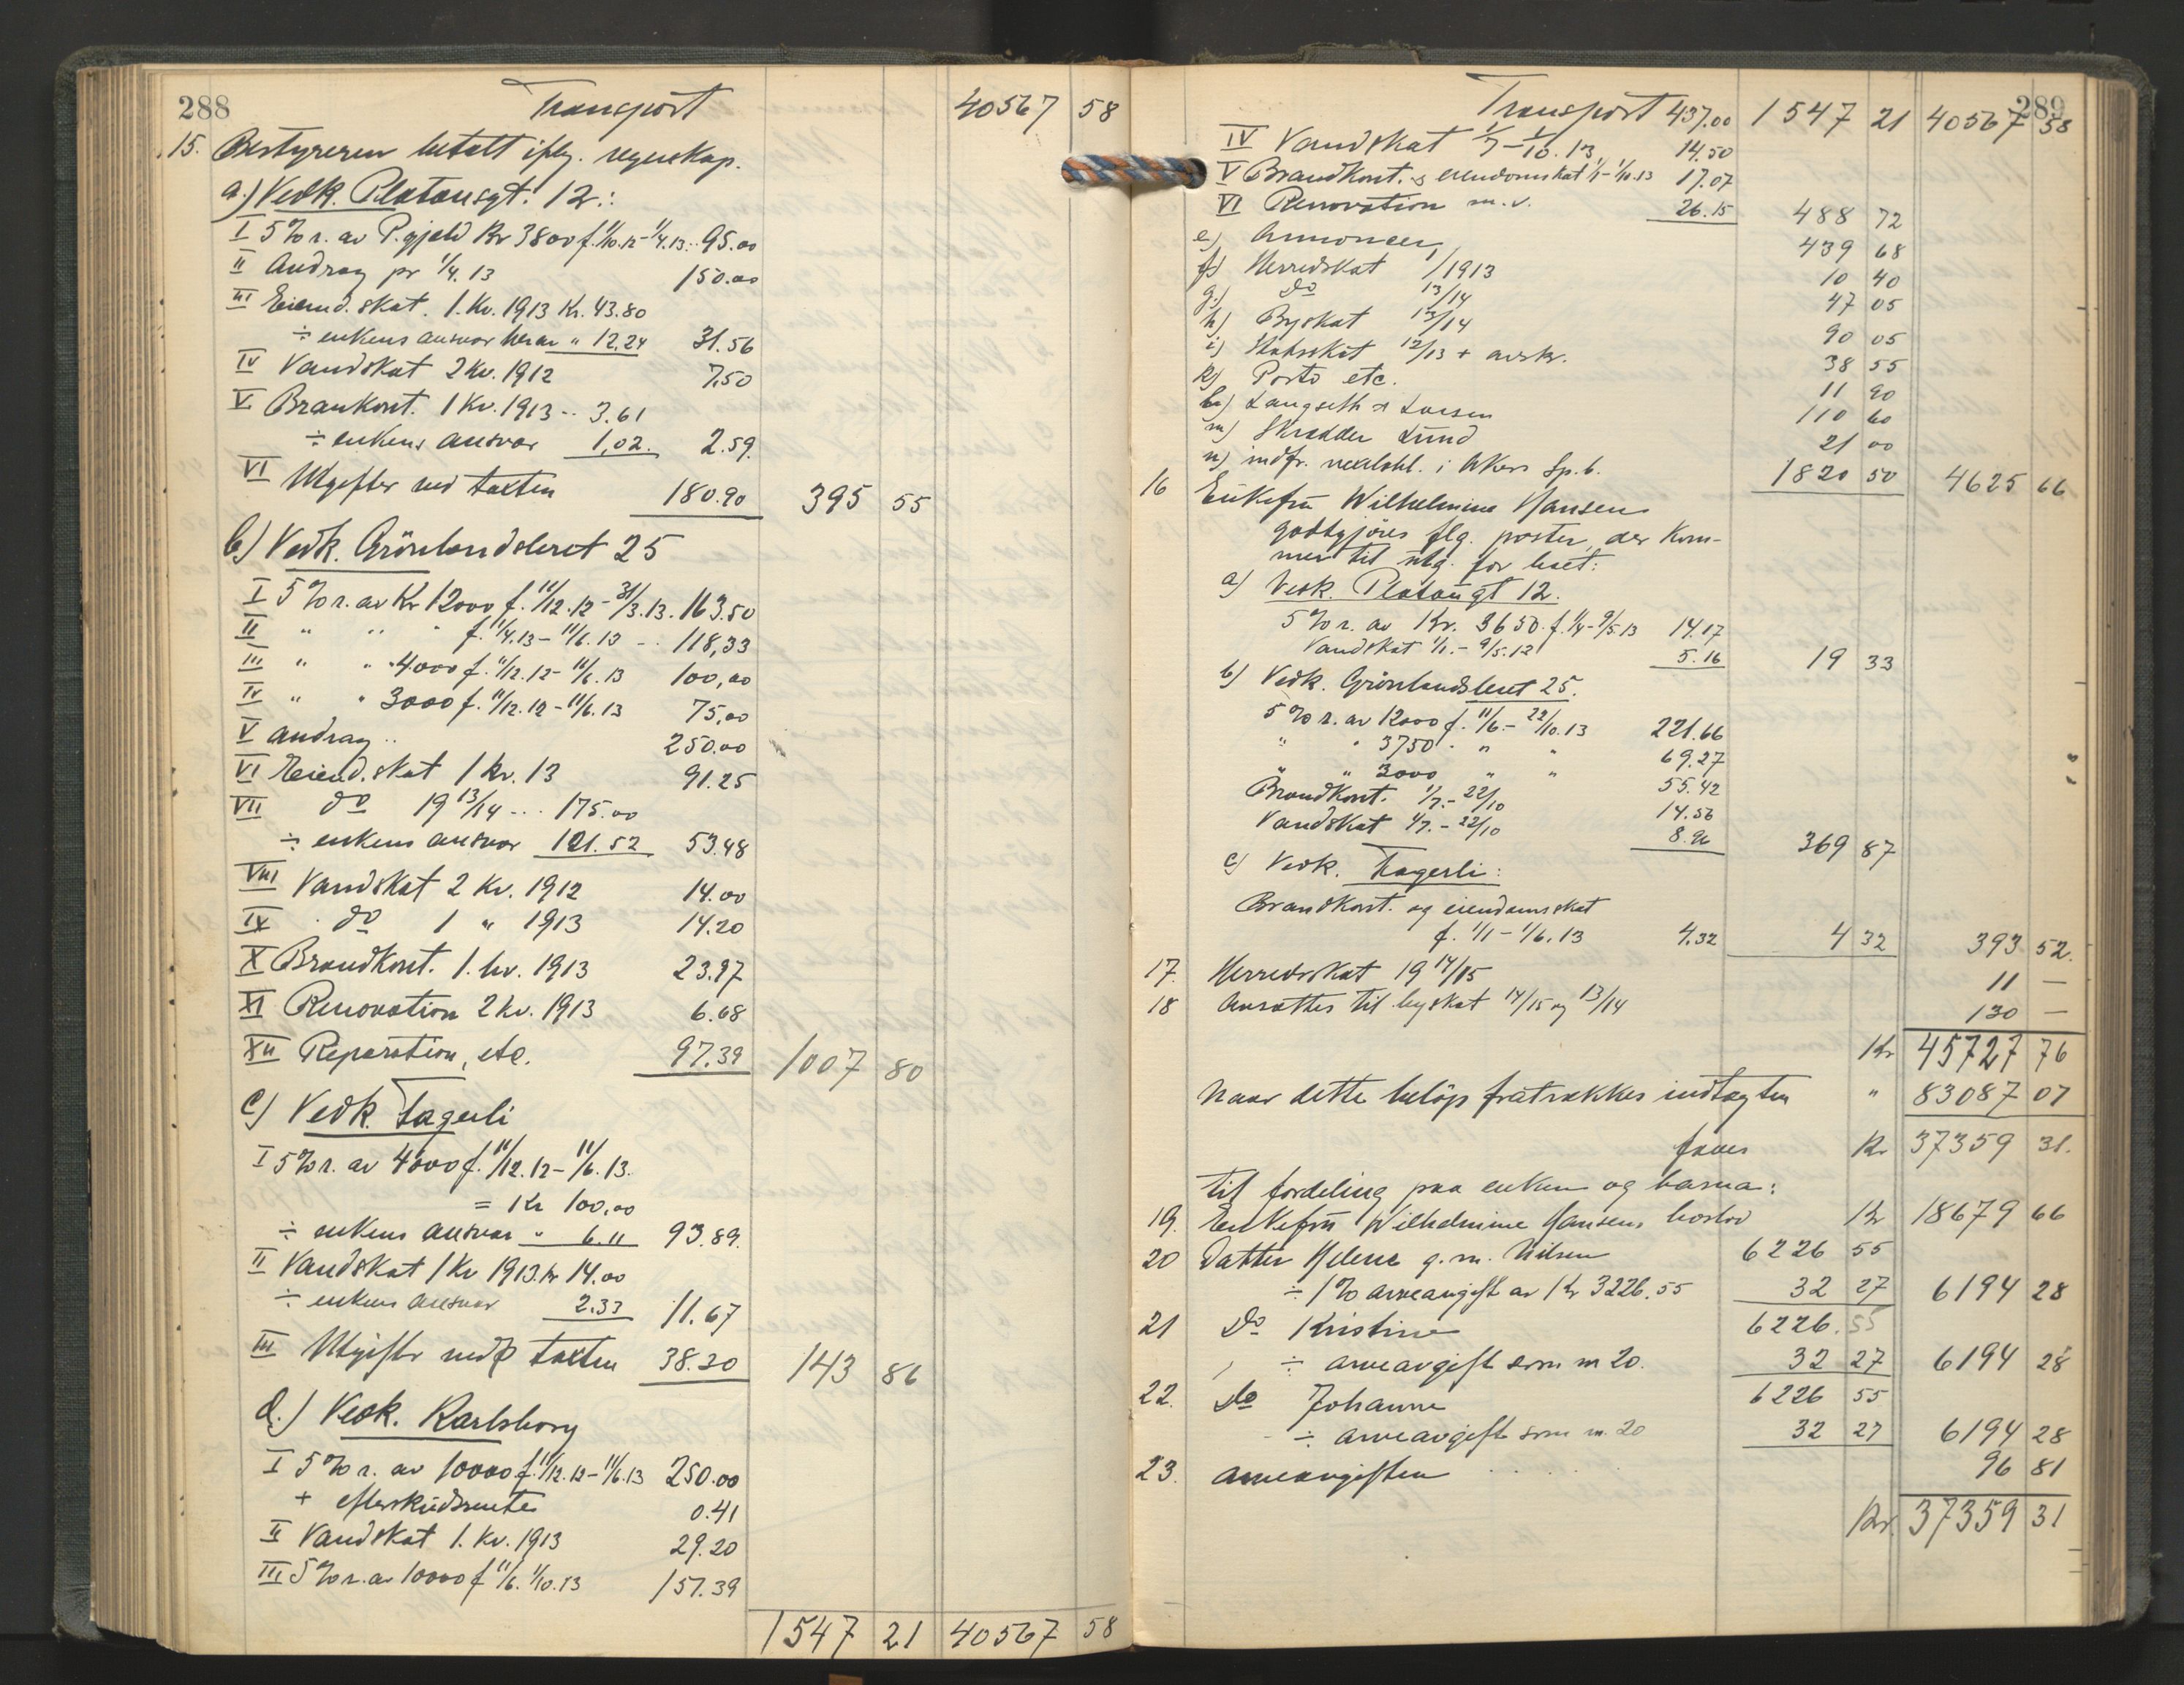 288 Transport 40567 58
15. Bestyreren betalt iflg. regnskap.
a.) Vedk. Platousgt. 12.:
I 5% r. av P.gjeld Kr 3800 f. 1/10.12-1/4.13.. 95.00
II Avdrag pr 1/4. 13 150.00
III Eiend.skat. 1. Kv. 1913 Kr. 43.80
÷ enkens ansvar herav " 12.24 31.56
IV Vandskat 2 Kv. 1912 7.50
V. Brankont. 1 Kv. 1913 .. 3.61
÷ enkens ansvar 1,02. 2.59.
VI Utgifter ved taxten 180.90 395 55
b.) Vedk. Grönlandsleret 25
I 5% r. av Kr 12000 f. 11/12.12-31/3.13. 163.50
II " " " f. 1/4.13-11/6.13 .. 118,33
III " " 4000 f. 11/12.12-11/6.13 100,00
IV " " 3000 f. 11/12.12-11/6.13 75,00
V avdrag .. 250.00
VI Eiend.skat 1 kv. 13 91.25
VII do 19 13/14 ... 175.00
÷ enkens ansvar 121.52 53.48
VIII Vandskat 2 Kv. 1912 14.00
IX do 1 " 1913 14.20
X Brandkont. 1. kv. 1913 23.97
XI Renovation 2 kv. 1913 6.68
XII Reparation, etc. 97.39 1007 80
c) Vedk. Fagerli
I 5% r. av 4000 f. 11/12.12-11/6.13.
= Kr 100,00
÷ enkens ansvar " 6.11 93.89.
II Vandskat 1 Kv 1913. kr 14.00
÷ enkens ansvar 2.33 11.67
III Utgifter ved taxten 38.30 143 86
d.) Vedk. Karlsborg
I 5% r. av 10000 f. 11/12.12-11/6.13 250.00
+ efterskudsrente 0.41
II Vandskat 1. Kv. 1913 29.20
III 5% r. av 10000 f 11/6. 1/10.13 157.39
1547 21 40567 58
289
Transport 437.00 1547 21 40567 58
IV Vandskat 1/7-1/10.13 14.50
V Brandkont. & eiendomskat 1/1-1/10.13 17.07
VI Renovation m.v. 26.15 488 72
e) Annoncer, 439 68
f) Herredskat /1913 10 40
g.) do 13/14 47 05
h) Byskat 13/14 90 05
i) Statsskat 12/13 + avskr. 38 55
k) Porto etc. 11 90
l.) Langseth & Larsen 110 60
m) Skrædder Lund 21 00
n) indfr. vexelobl. i Akers Sp.b. 1820 50 4625 66
16 Enkefru Wilhelmine Hansen
godtgjöres flg. poster, der kom-
mer til utg. for boet:
a) Vedk. Platougt 12.
5% r. av Kr. 3650. f. 1/4-9/5.13 14.17
Vandskat 1/1.-9/5.13 5.16 19 33
b) Vedk. Grönlandsleret 25.
5% r. av 12000 f. 11/6.-22/10.13 221.66
" " 3750 " " 69.27
" " 3000 " " 55.42
Brandkont. 1/7.-22/10 14.56
Vandskat 1/7.-22/10 8.96 369 87
c) Vedk. Fagerli:
Brandkont. og eiendomsskat
f. 1/1-1/6.13 4.32 4 32 393 52.
17. Herredsskat 19 14/15 11 —
18 Avsættes til byskat 14/15 og 13/14 130 —
Kr 45727 76
Naar dette belöp fratrækkes indtægten " 83087 07
faaes Kr 37359 31.
til fordeling paa enken og barna:
19. Enkefru Wilhelmine Hansens boslod Kr 18679 66
20 Datter Helene g.m. Nilsen 6226 55
÷ 1% arveavgift av Kr 3226.55 32 27 6194 28
21 do Kristine 6226. 55
÷ arveavgift som n 20. 32 27 6194 28
22. do Johanne 6226 55
÷ arveavgift som n. 20 32 27 6194 28
23. Arveavgiften . . . . . 96 81
Kr. 37359 31